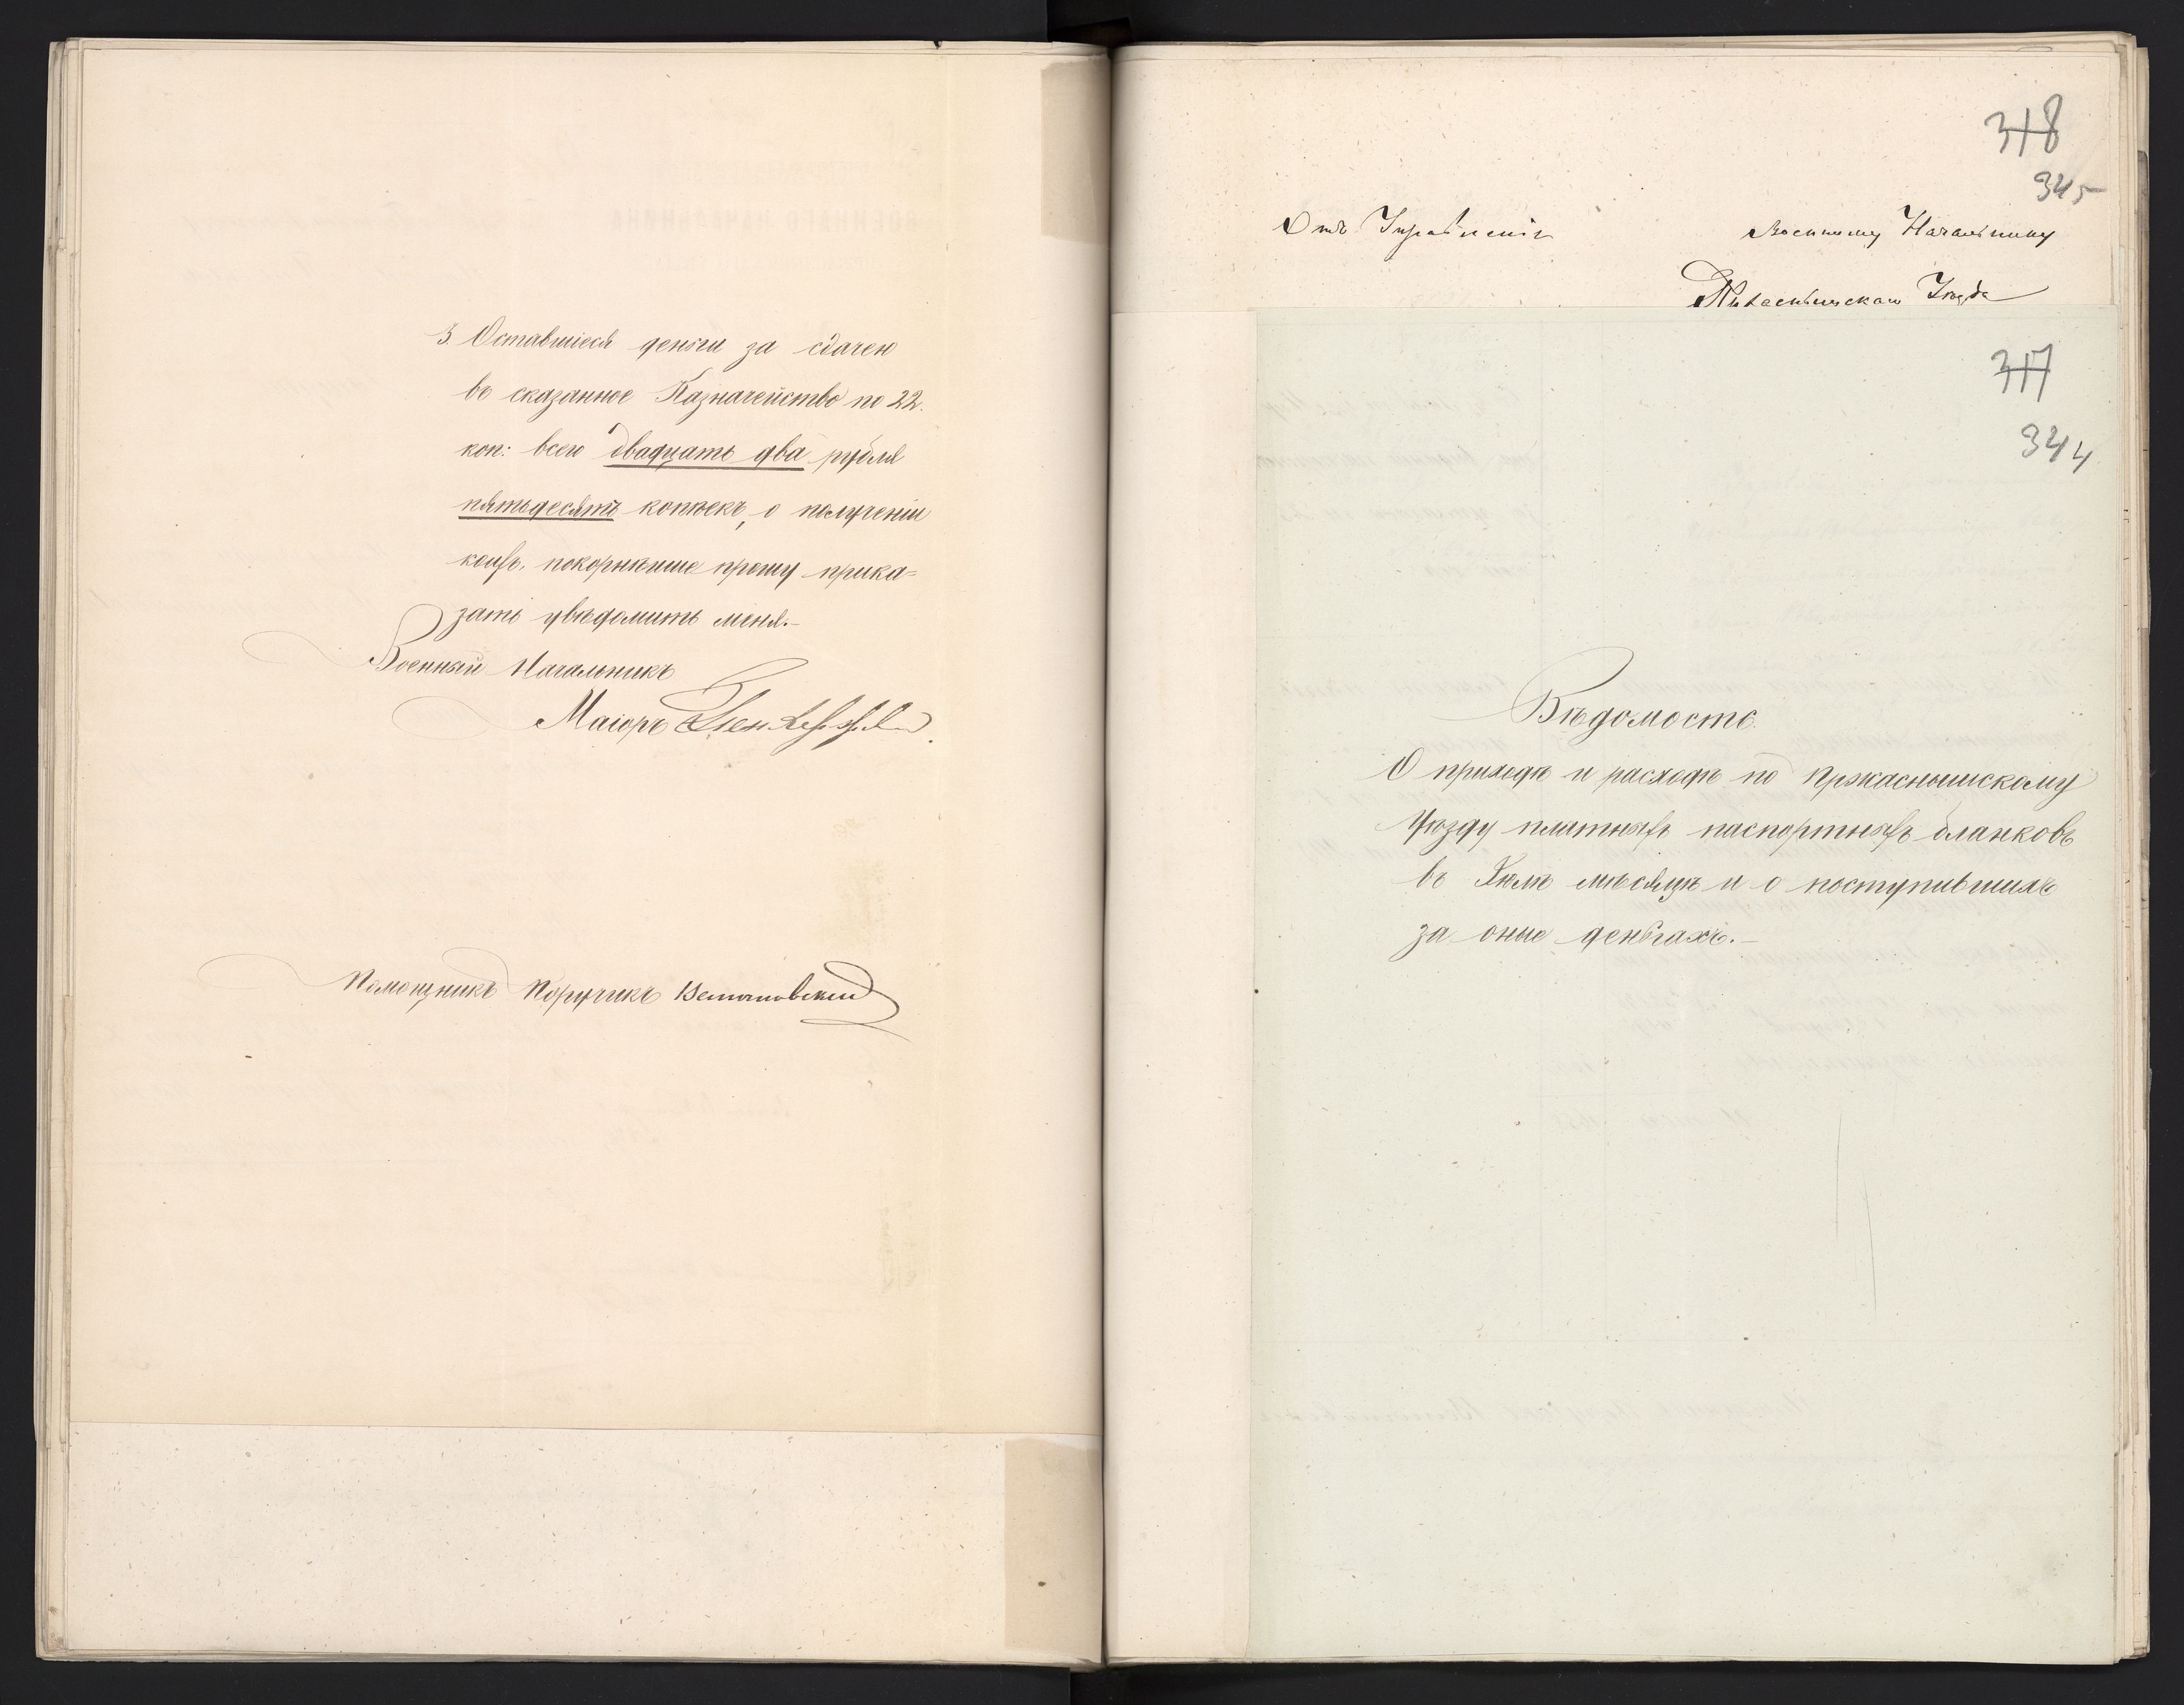 3. Оставшіеся деньги за сдачею
въ сказанное Казначейство по 22.
коп: всего двадцать два рубля
пятьдесятъ копѣекъ, о полученіи
коихъ, покорнѣйше прошу прика=
зать увѣдомить меня.-
Военный Начальникъ
Маіоръ
Помощникъ Поручикъ
318
345
Отъ Управленія
Военному Начальнику
Пшаснышскаго Уѣзда
317
344
Вѣдомость.
О приходѣ и расходѣ по Пржаснышскому
Уѣзду платныхъ паспортныхъ бланковъ
въ Іюлѣ мѣсяцѣ и о поступившихъ
за оные деньгахъ.-